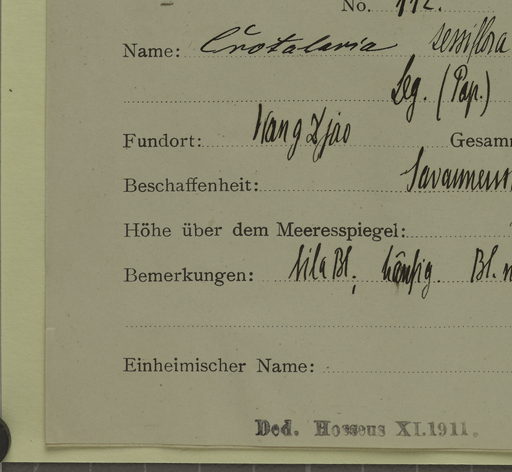 No. 112.
Name: Crotalaria sessiflora
Leg. (Pap.)
Fundort: Wang Djao Gesamm
Beschaffenheit: Savannen
Höhe über dem Meeresspiegel:
Bemerkungen: lila Bl. häufig. Bl.
Einheimischer Name:
Ded. Hosseus XI.1911.